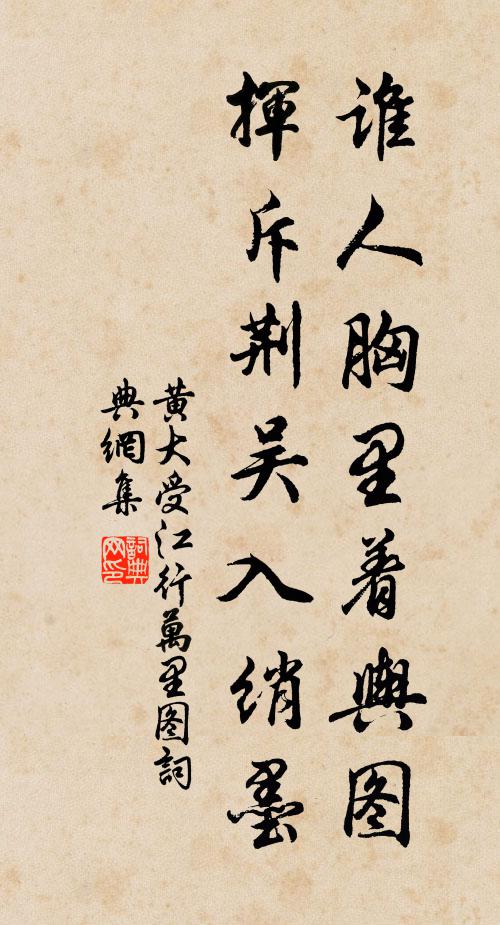 谁人胸里着舆图
挥斥荆吴入绡墨
黄大受江行萬里图詞
典網集
詞典网印